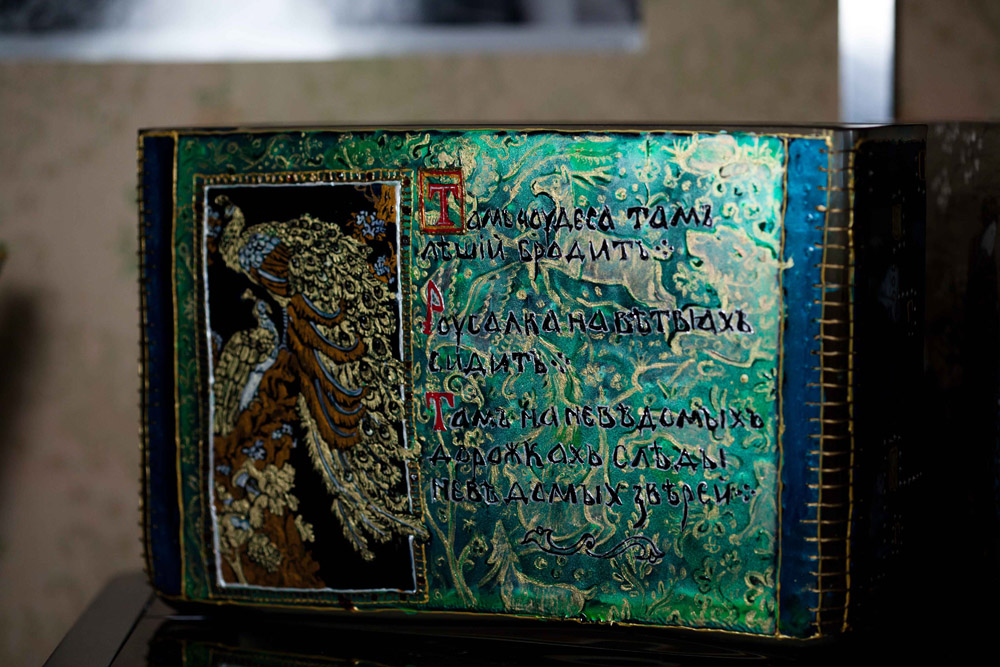 Тамъ чоудеса тамъ
лѣшій бродитъ
Роусалка на вѣтвıахъ
сидитъ
Тамъ на невѣдомыхъ
дорожкахъ слѣды
невѣдомых звѣрей